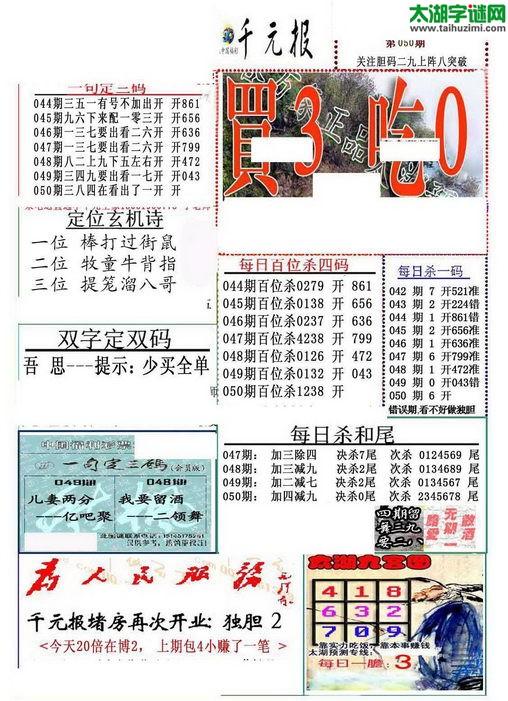 太湖字谜网
www.taihuzimi.com
千元报
第050期
关注胆码二九上阵八突破
一句定三码
044期三五一有号不加出开 开861
045期九六下来配一零三开 开656
046期一三七要出看二六开 开636
047期一三七要出看二六开 开799
048期八二上九下五左右开 开472
049期三四九要出看一七开 开043
050期三八四在看出了一开 开
買3吃0
正品
定位玄机诗
一位 棒打过街鼠
二位 牧童牛背指
三位 提笼溜八哥
每日百位杀四码
044期百位杀0279 开 861
045期百位杀0138 开 656
046期百位杀0237 开 636
047期百位杀4238 开 799
048期百位杀0126 开 472
049期百位杀0132 开 043
050期百位杀1238 开
每日杀一码
042 期 7 开521准
043 期 2 开224错
044 期 1 开861错
045 期 2 开656准
046 期 1 开636准
047 期 6 开799准
048 期 1 开472准
049 期 0 开043错
050 期 6 开
错误期,看不好做独胆
双字定双码
吾 思---提示: 少买全单
每日杀和尾
047期: 加三除四 决杀7尾 次杀 0124569 尾
048期: 加三减九 决杀2尾 次杀 0134689 尾
049期: 加二减七 决杀2尾 次杀 0134567 尾
050期: 加四减九 决杀0尾 次杀 2345678 尾
中国福利彩票
一句定三码(会员版)
049期 048期
儿妻两分 我要留酒
---亿吧聚 ---二领舞
仅供参考,
四期留
舞三九
要二八
为人民服务
千元报堵房再次开业: 独胆 2
<今天20倍在博2, 上期包4小赚了一笔 >
太湖九宫图
4 1 8
6 3 2
7 0 9
靠实力吃饭, 靠本事赚钱
太湖预测专线:
每日一胆: 3